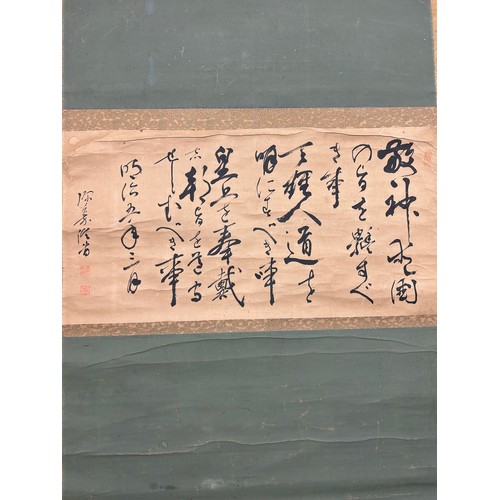 敬神愛国
の旨を體すべ
き事
天理人道を
明にすべき事
皇上を奉戴
し朝旨を遵守
せしむべき事
明治五年三月